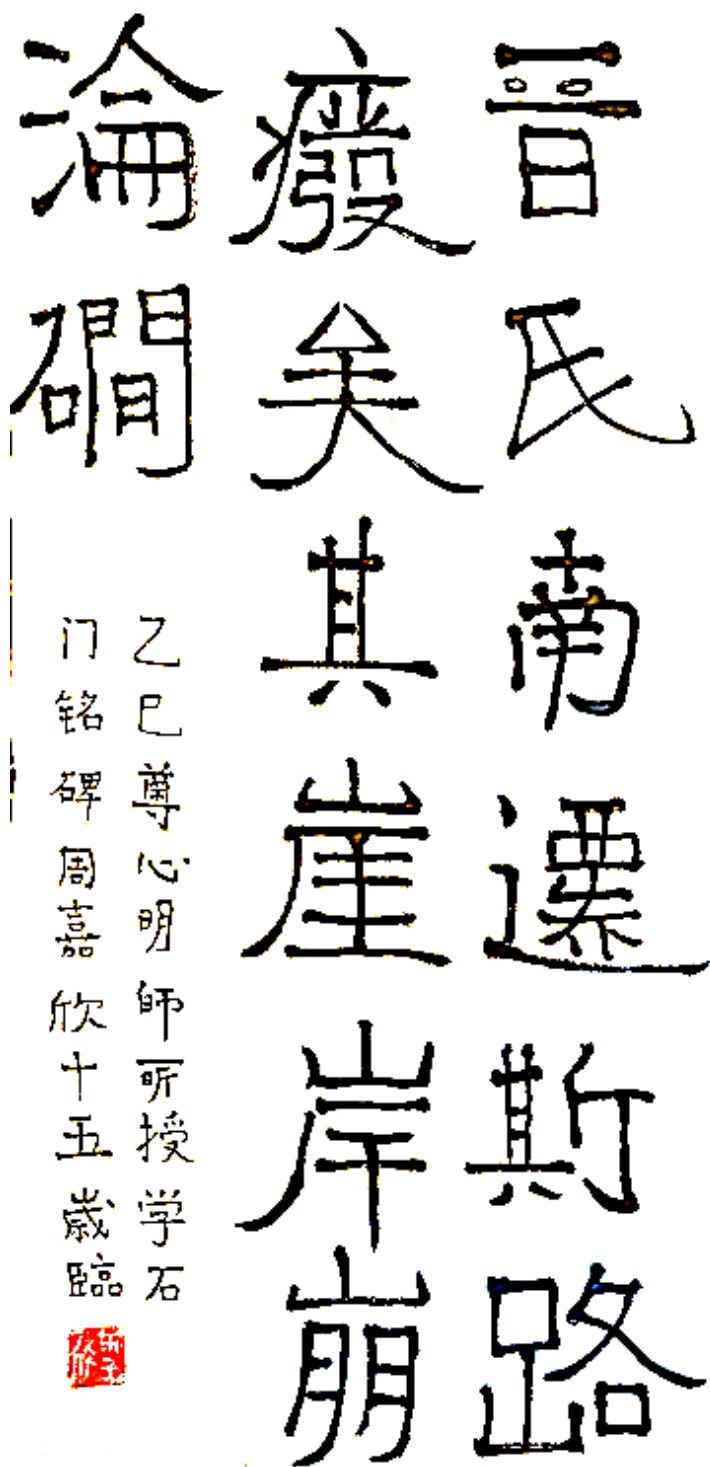 晋氏南遷斯路
癈矣其崖岸崩
淪磵
乙巳尊心明師所授学石
门铭碑周嘉欣十五歲臨